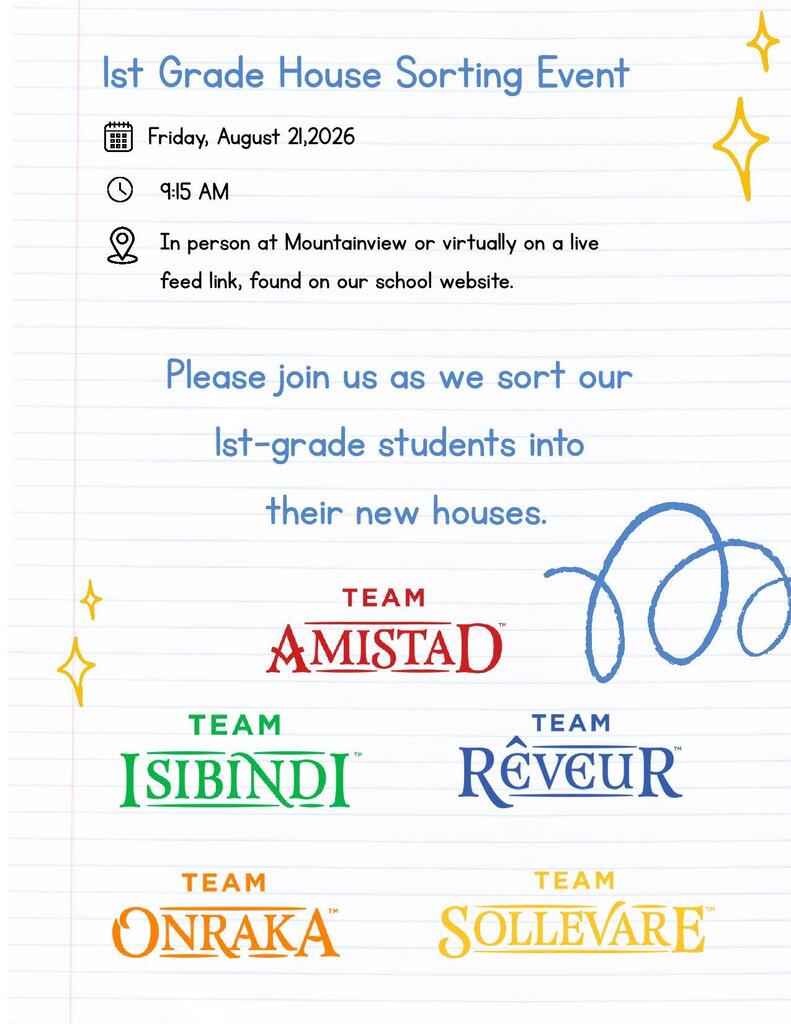 1st Grade House Sorting Event
Friday, August 21,2026
9:15 AM
In person at Mountainview or virtually on a live
feed link, found on our school website.
Please join us as we sort our
1st-grade students into
their new houses.
TEAM
AMISTAD™
TEAM
ISIBINDI™
TEAM
RÊVEUR™
TEAM
ONRAKA™
TEAM
SOLLEVARE™